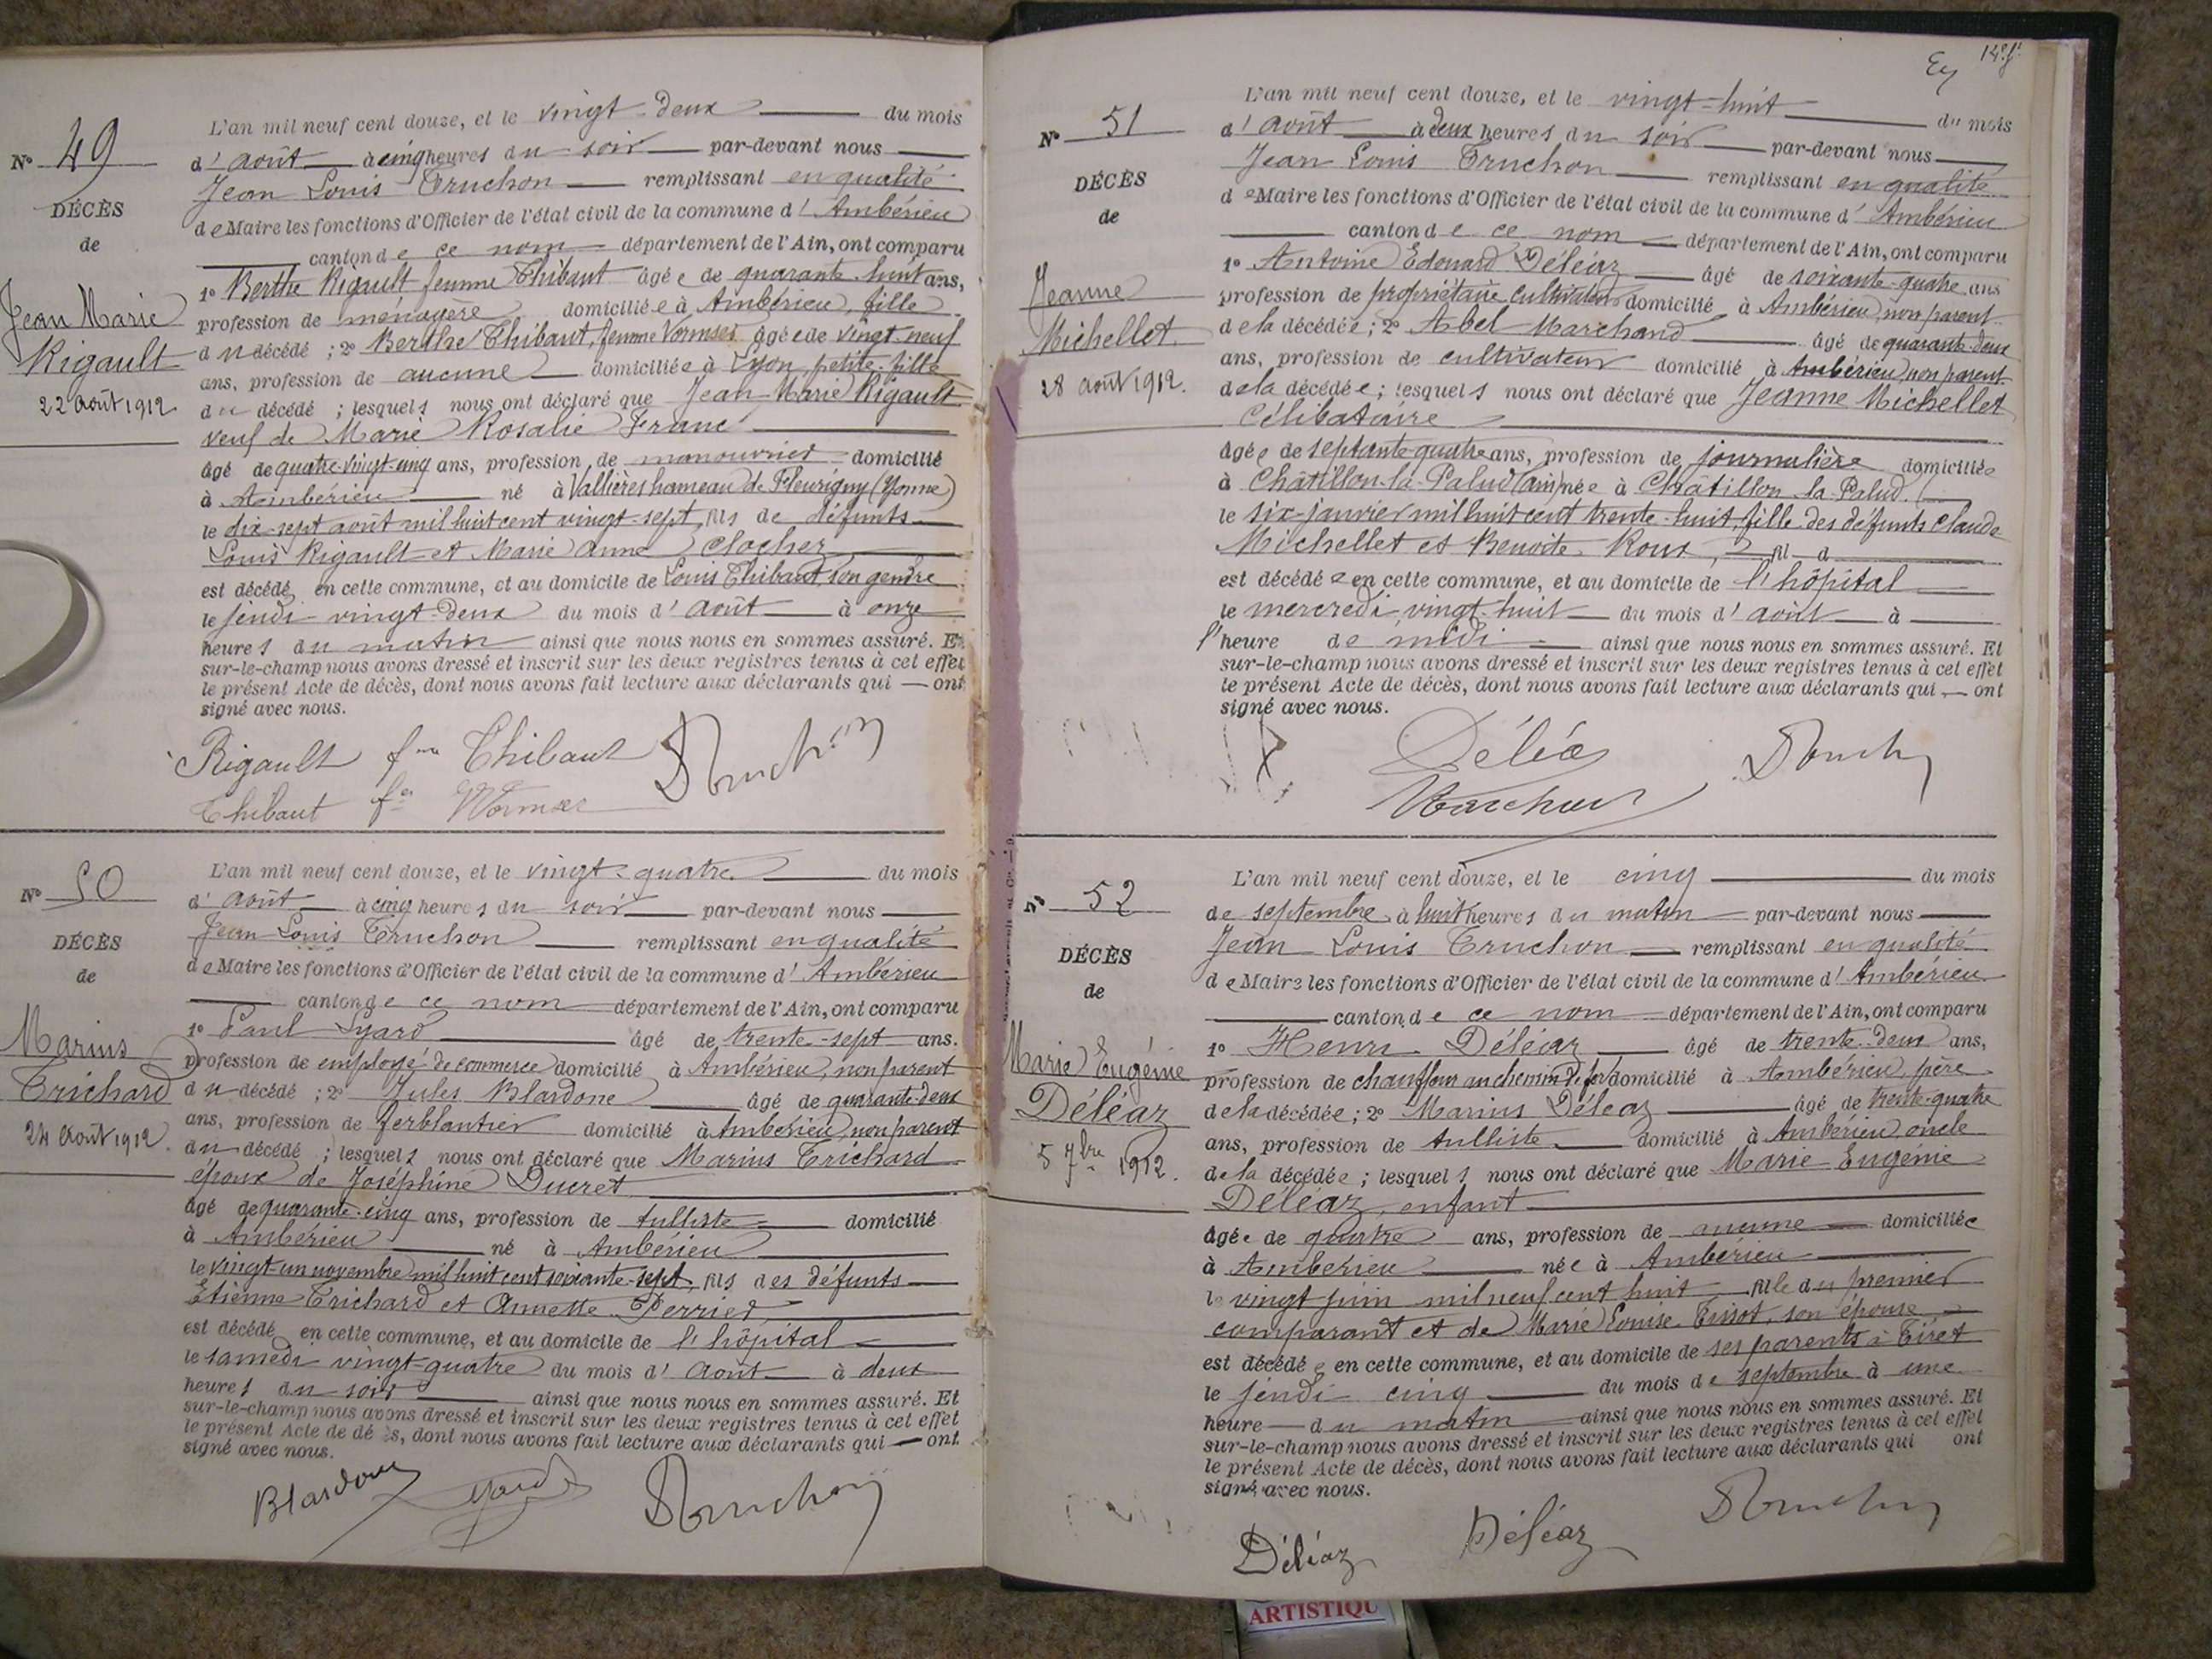 N° 49
DÉCÈS
de
Jean Marie
Rigault
22 août 1912
L'an mil neuf cent douze, et le vingt-deux du mois
d'août à cinq heures du soir par-devant nous
Jean Louis Truchon remplissant en qualité
de Maire les fonctions d'Officier de l'état civil de la commune d'Ambérieu
canton de ce nom département de l'Ain, ont comparu
1° Berthe Rigault femme Thibaut âgée de quarante-huit ans,
profession de ménagère domiciliée à Ambérieu, fille
du décédé ; 2° Berthe Thibaut, femme Vormser âgée de vingt-neuf
ans, profession de aucune domiciliée à Lyon, petite-fille
du décédé ; lesquels nous ont déclaré que Jean Marie Rigault
veuf de Marie Rosalie Franc
âgé de quatre-vingt-cinq ans, profession de manouvrier domicilié
à Ambérieu né à Vallières hameau de Fleurigny (Yonne)
le dix-sept août mil huit cent vingt-sept, fils de défunts
Louis Rigault et Marie Anne Clocher
est décédé en cette commune, et au domicile de Louis Thibaut, son gendre
le jeudi vingt-deux du mois d'août à onze
heures du matin ainsi que nous nous en sommes assuré. Et
sur-le-champ nous avons dressé et inscrit sur les deux registres tenus à cet effet
le présent Acte de décès, dont nous avons fait lecture aux déclarants qui — ont
signé avec nous.
Rigault fme Thibaut Truchon
Thibaut fe Wormser
N° 50
DÉCÈS
de
Marius
Trichard
24 août 1912.
L'an mil neuf cent douze, et le vingt-quatre du mois
d'août à cinq heures du soir par-devant nous
Jean Louis Truchon remplissant en qualité
de Maire les fonctions d'Officier de l'état civil de la commune d'Ambérieu
canton de ce nom département de l'Ain, ont comparu
1° Paul Syard âgé de trente-sept ans.
profession de employé de commerce domicilié à Ambérieu, non parent
du décédé ; 2° Jules Blardone âgé de quarante-deux
ans, profession de ferblantier domicilié à Ambérieu, non parent
du décédé ; lesquels nous ont déclaré que Marius Trichard
époux de Joséphine Ducret
âgé de quarante-cinq ans, profession de tulliste domicilié
à Ambérieu né à Ambérieu
le vingt-un novembre mil huit cent soixante-sept, fils des défunts
Etienne Trichard et Annette Perrier
est décédé en cette commune, et au domicile de l'hôpital
le samedi vingt-quatre du mois d'août à deux
heures du soir ainsi que nous nous en sommes assuré. Et
sur-le-champ nous avons dressé et inscrit sur les deux registres tenus à cet effet
le présent Acte de décès, dont nous avons fait lecture aux déclarants qui — ont
signé avec nous.
Blardone Syard Truchon
Ey 14e f.
N° 51
DÉCÈS
de
Jeanne
Michellet
28 août 1912.
L'an mil neuf cent douze, et le vingt-huit du mois
d'août à deux heures du soir par-devant nous
Jean Louis Truchon remplissant en qualité
de Maire les fonctions d'Officier de l'état civil de la commune d'Ambérieu
canton de ce nom département de l'Ain, ont comparu
1° Antoine Edouard Déléaz âgé de soixante-quatre ans
profession de propriétaire cultivateur domicilié à Ambérieu, non parent
de la décédée ; 2° Abel Marchand âgé de quarante-deux
ans, profession de cultivateur domicilié à Ambérieu, non parent
de la décédée ; lesquels nous ont déclaré que Jeanne Michellet
Célibataire
âgée de septante-quatre ans, profession de journalière domiciliée
à Châtillon-la-Palud (Ain) née à Châtillon la Palud
le six-janvier mil huit cent trente-huit, fille des défunts Claude
Michellet et Benoite Roux, fil d
est décédée en cette commune, et au domicile de l'hôpital
le mercredi vingt-huit du mois d'août à
l'heure de midi ainsi que nous nous en sommes assuré. Et
sur-le-champ nous avons dressé et inscrit sur les deux registres tenus à cet effet
le présent Acte de décès, dont nous avons fait lecture aux déclarants qui — ont
signé avec nous.
Déléa Truchon
Marchand
N° 52
DÉCÈS
de
Marie Eugénie
Déléaz
5 7bre 1912.
L'an mil neuf cent douze, et le cinq du mois
de septembre à huit heures du matin par-devant nous
Jean Louis Truchon remplissant en qualité
de Maire les fonctions d'Officier de l'état civil de la commune d'Ambérieu
canton de ce nom département de l'Ain, ont comparu
1° Henri Déléaz âgé de trente-deux ans,
profession de chauffeur au chemin de fer domicilié à Ambérieu, père
de la décédée ; 2° Marius Déléaz âgé de trente-quatre
ans, profession de tulliste domicilié à Ambérieu, oncle
de la décédée ; lesquels nous ont déclaré que Marie Eugénie
Déléaz, enfant
âgée de quatre ans, profession de aucune domiciliée
à Ambérieu née à Ambérieu
le vingt juin mil neuf cent huit fille du premier
comparant et de Marie Louise Tissot, son épouse
est décédée en cette commune, et au domicile de ses parents à Tiret
le jeudi cinq du mois de septembre à une
heure du matin ainsi que nous nous en sommes assuré. Et
sur-le-champ nous avons dressé et inscrit sur les deux registres tenus à cet effet
le présent Acte de décès, dont nous avons fait lecture aux déclarants qui ont
signé avec nous.
Déléaz Déléaz Truchon
ARTISTIQU